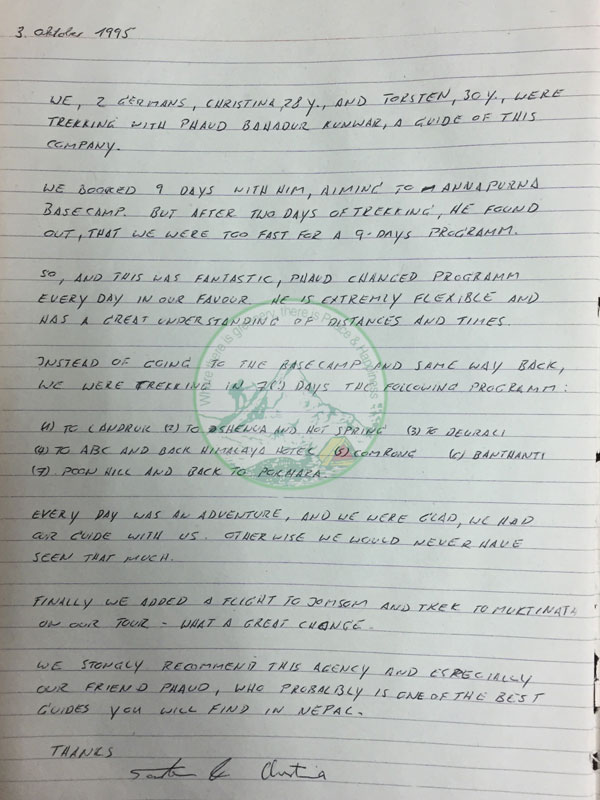 3. Oktober 1995
WE, 2 GERMANS, CHRISTINA, 28 Y., AND TORSTEN, 30 Y., WERE
TREKKING WITH PHAUD BAHADUR KUNWAR, A GUIDE OF THIS
COMPANY.
WE BOOKED 9 DAYS WITH HIM, AIMING TO ANNAPURNA
BASECAMP. BUT AFTER TWO DAYS OF TREKKING, HE FOUND
OUT, THAT WE WERE TOO FAST FOR A 9-DAYS PROGRAMM.
SO, AND THIS WAS FANTASTIC, PHAUD CHANGED PROGRAMM
EVERY DAY IN OUR FAVOUR. HE IS EXTREMLY FLEXIBLE AND
HAS A GREAT UNDERSTANDING OF DISTANCES AND TIMES.
Where there is greenery, there is Peace & Happiness
INSTEAD OF GOING TO THE BASECAMP AND SAME WAY BACK,
WE WERE TREKKING IN 7(!) DAYS THE FOLLOWING PROGRAMM:
(1) TO LANDRUK (2) TO AND HOT SPRING (3) TO DEURALI
(4) TO ABC AND BACK HIMALAYA HOTEL (5) COMRONG (6) BANTHANTI
(7) POON HILL AND BACK TO POKHARA
EVERY DAY WAS AN ADVENTURE, AND WE WERE GLAD, WE HAD
OUR GUIDE WITH US. OTHERWISE WE WOULD NEVER HAVE
SEEN THAT MUCH.
FINALLY WE ADDED A FLIGHT TO JOMSOM AND TREK TO MUKTINATA
ON OUR TOUR - WHAT A GREAT CHANGE.
WE STONGLY RECOMMEND THIS AGENCY AND ESPECIALLY
OUR FRIEND PHAUD, WHO PROBALBLY IS ONE OF THE BEST
GUIDES YOU WILL FIND IN NEPAL.
THANKS
Christina